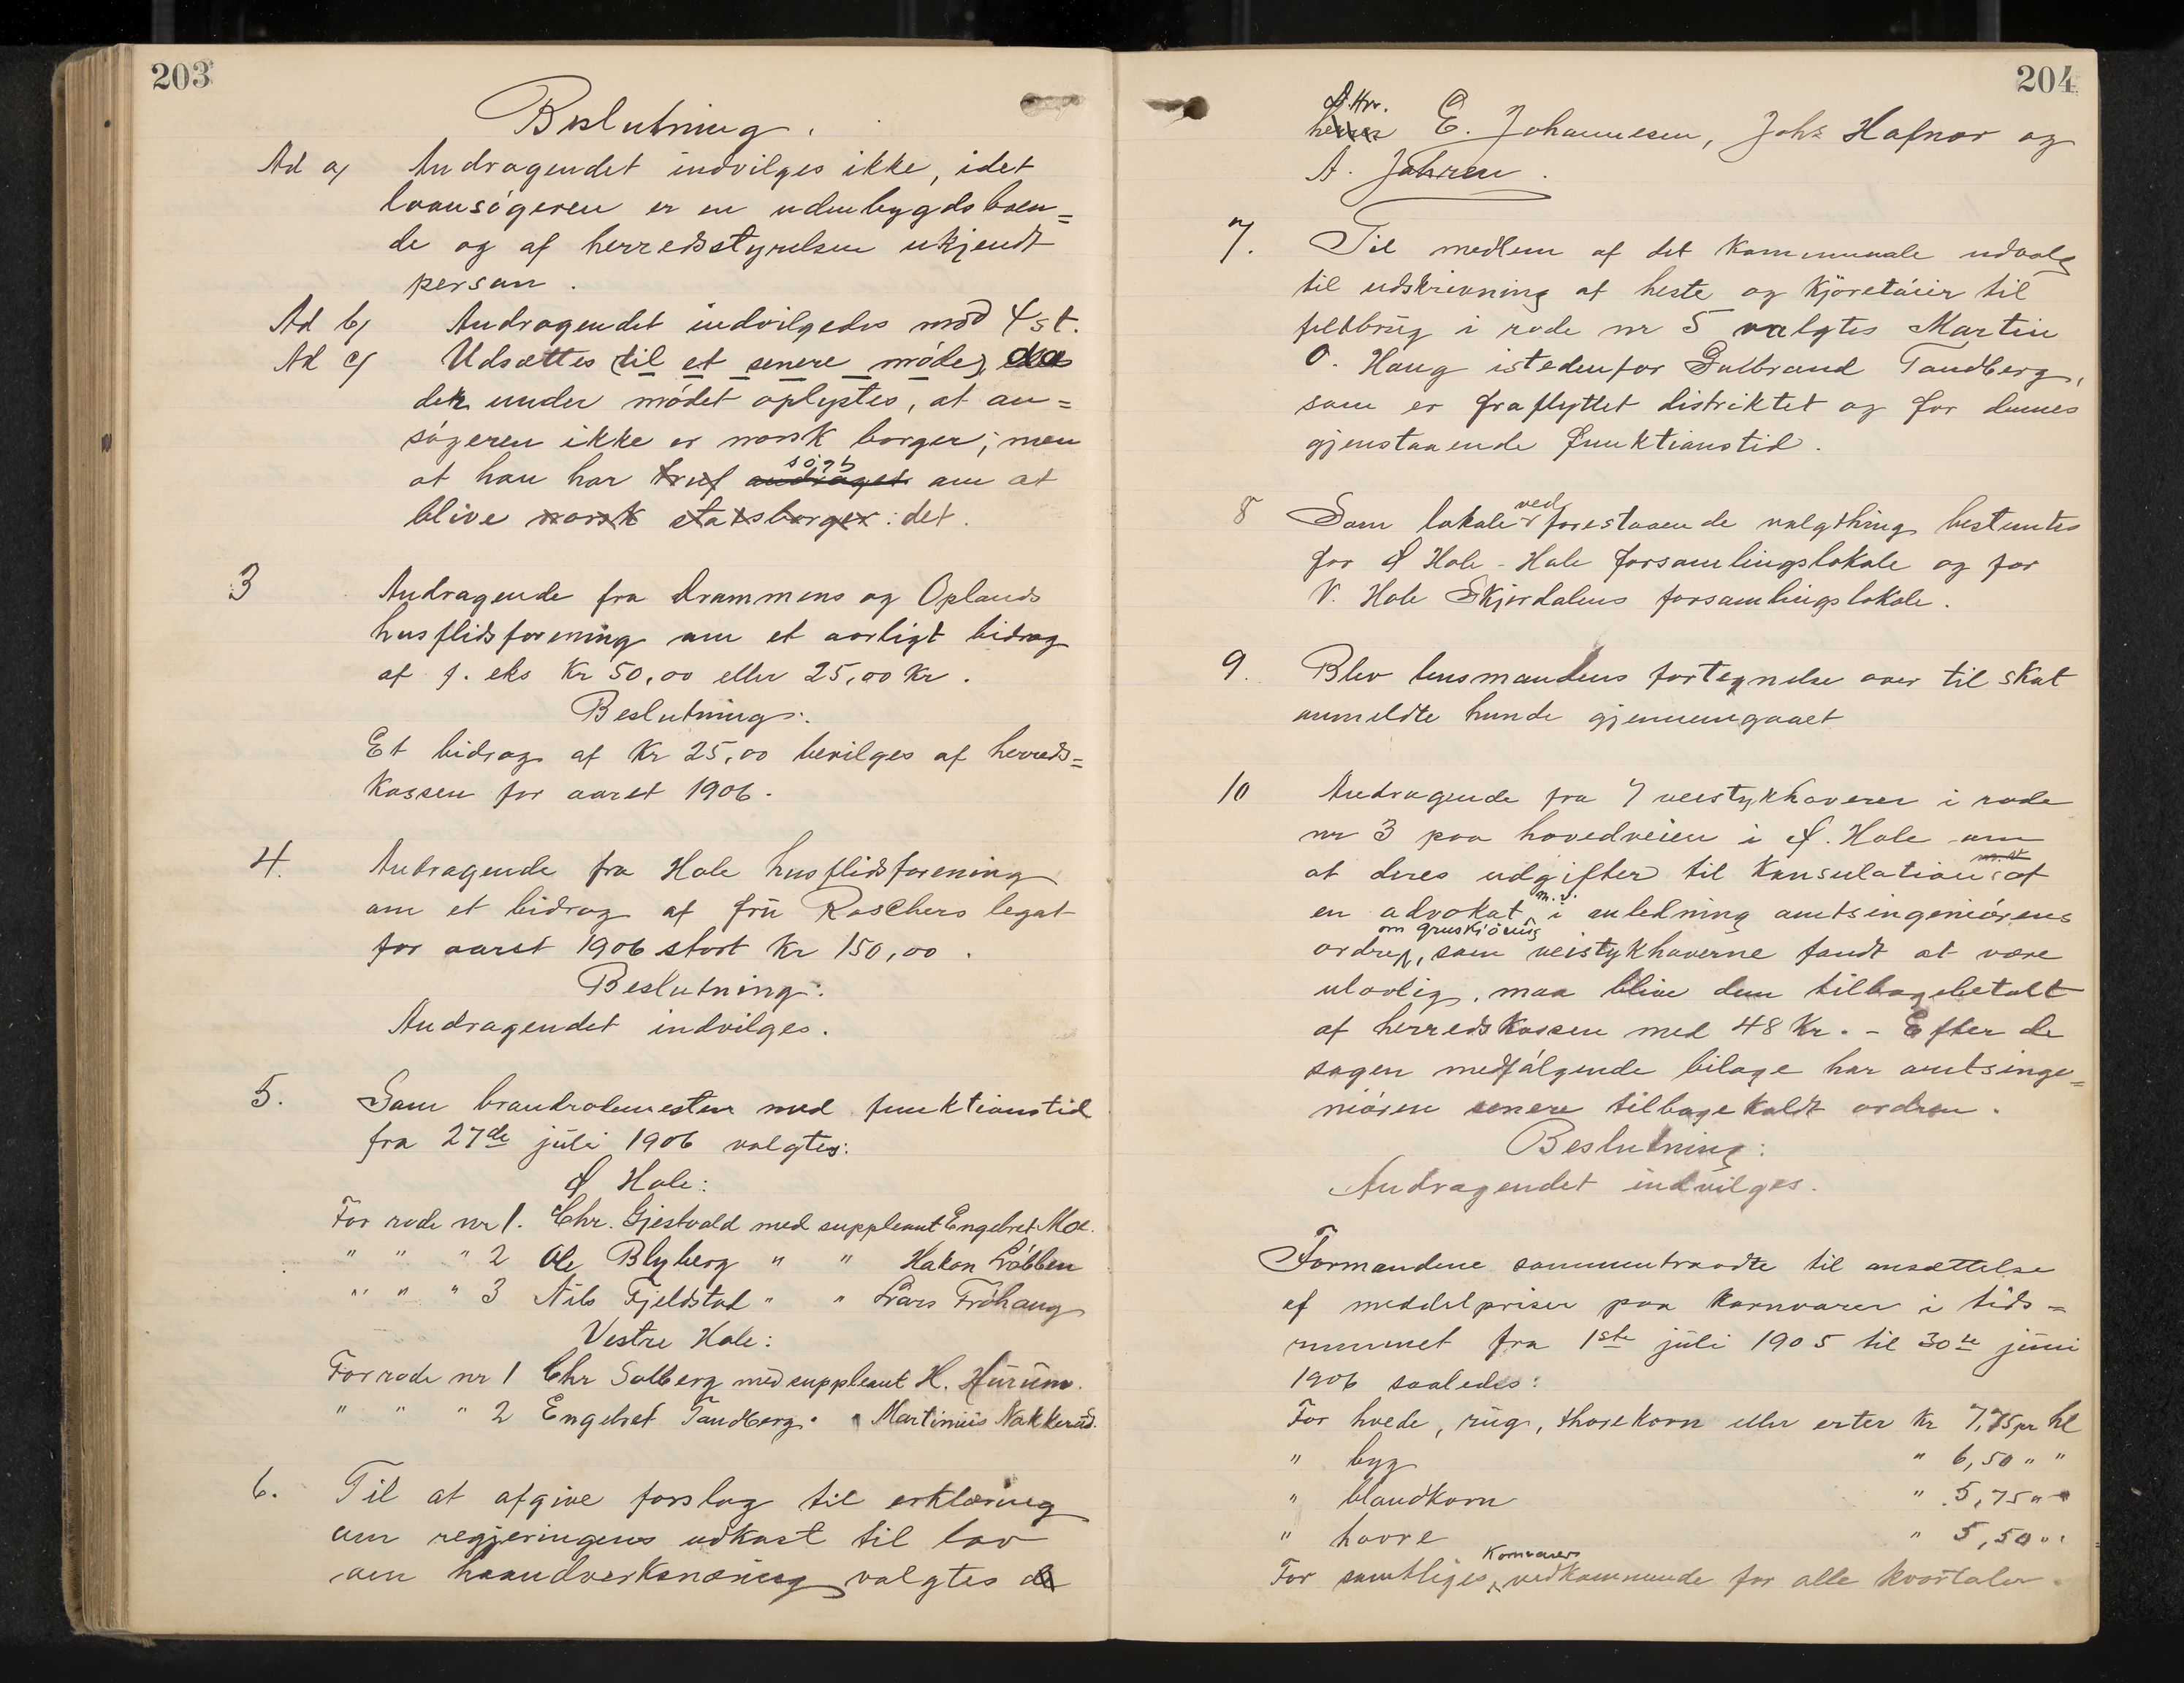 203
Beslutning.
Ad a) Andragendet indvilges ikke, idet
laansøgeren er en udenbygdsboen=
de og af herredsstyrelsen ukjendt
person.
Ad b) Andragendet indvilgedes mod 4 st.
Ad c) Udsættes (til et senere møde), da
der under mødet oplystes, at an=
søgeren ikke er norsk borger; men
søgt
at han har truf andraget om at
blive norsk statsborger: det.
3 Andragende fra Drammens og Oplands
husflidsforening om et aarligt bidrag
af f. eks Kr 50,00 eller 25,00 Kr.
Beslutning:
Et bidrag af Kr 25,00 bevilges af herreds=
kassen for aaret 1906.
4. Andragende fra Hole husflidsforening
om et bidrag af fru Raschers legat
for aaret 1906 stort Kr 150,00.
Beslutning:
Andragendet indvilges.
5. Som brandrodemestere med funktionstid
fra 27de juli 1906 valgtes:
Ø Hole:
For rode nr 1. Chr. Gjestvold med suppleant Engebret Moe.
" " " 2 Ole Blyberg " " Hakon Løbben
" " " 3 Nils Fjeldstad " " Lars Frøhaug
Vestre Hole:
For rode nr 1 Chr Solberg med suppleant H. Hurum.
" " " 2 Engebret Tandberg " " Martinius Nakkerud.
6. Til at afgive forslag til erklæring
om regjeringens udkast til lov
om haandverksnæring valgtes
204
Hrr.
herrer E. Johannesen, Johs Hafnor og
A. Jahren.
7. Til medlem af det kommunale udvalg
til udskrivning af heste og kjøretøier til
feltbrug i rode nr 5 valgtes Martin
O. Haug istedenfor Gulbrand Tandberg,
som er fraflyttet distriktet og for dennes
gjenstaaende funktionstid.
8 Som lokale ved forestaaende valgthing bestemtes
for Ø Hole - Hole forsamlingslokale og for
V. Hole Skjærdalens forsamlingslokale.
9. Blev lensmandens fortegnelse over til skat
anmeldte hunde gjennemgaaet
10 Andragende fra 7 veistykhavere i rode
nr 3 paa hovedveien i Ø. Hole om
at deres udgifter til konsulation af
en advokat m.v. i anledning amtsingeniørens
om gruskjøring
ordre, som veistykhaverne fandt at være
ulovlig, maa blive dem tilbagebetalt
af herredskassen med 48 Kr. - Efter de
sagen medfølgende bilage har amtsinge=
niøren senere tilbagekaldt ordren.
Beslutning:
Andragendet indvilges.
Formændene sammentraadte til ansættelse
af middelpriser paa kornvarer i tids=
rummet fra 1ste juli 1905 til 30te juni
1906 saaledes:
For hvede, rug, thorekorn eller erter Kr 7,75 pr hl
" byg " 6,50 " "
" blandkorn " 5,75 " "
" havre " 5,50 " "
Kornvarer
For samtliges vedkommende for alle kvartaler.